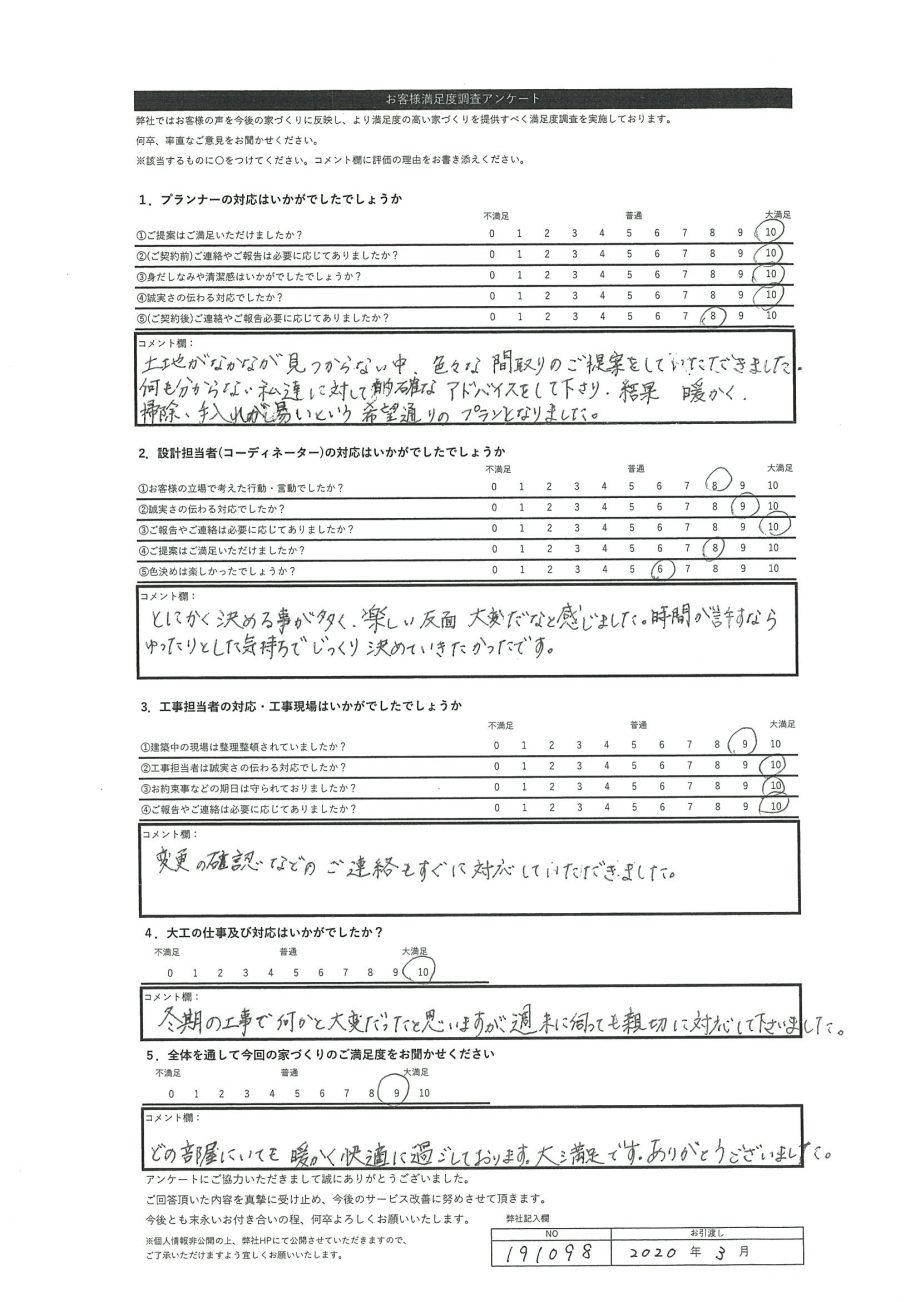 お客様満足度調査アンケート
弊社ではお客様の声を今後の家づくりに反映し、より満足度の高い家づくりを提供すべく満足度調査を実施しております。
何卒、率直なご意見をお聞かせください。
※該当するものに〇をつけてください。コメント欄に評価の理由をお書き添えください。
1．プランナーの対応はいかがでしたでしょうか
不満足 普通 大満足
①ご提案はご満足いただけましたか？ 0 1 2 3 4 5 6 7 8 9 10
②(ご契約前)ご連絡やご報告は必要に応じてありましたか？ 0 1 2 3 4 5 6 7 8 9 10
③身だしなみや清潔感はいかがでしたでしょうか？ 0 1 2 3 4 5 6 7 8 9 10
④誠実さの伝わる対応でしたか？ 0 1 2 3 4 5 6 7 8 9 10
⑤(ご契約後)ご連絡やご報告必要に応じてありましたか？ 0 1 2 3 4 5 6 7 8 9 10
コメント欄：
土地がなかなが見つからない中、色々な間取りのご提案をしていただきました。
何も分からない私達に対して的確なアドバイスをして下さり、結果 暖かく、
掃除、手入れが易いという希望通りのプランとなりました。
2．設計担当者(コーディネーター)の対応はいかがでしたでしょうか
不満足 普通 大満足
①お客様の立場で考えた行動・言動でしたか？ 0 1 2 3 4 5 6 7 8 9 10
②誠実さの伝わる対応でしたか？ 0 1 2 3 4 5 6 7 8 9 10
③ご報告やご連絡は必要に応じてありましたか？ 0 1 2 3 4 5 6 7 8 9 10
④ご提案はご満足いただけましたか？ 0 1 2 3 4 5 6 7 8 9 10
⑤色決めは楽しかったでしょうか？ 0 1 2 3 4 5 6 7 8 9 10
コメント欄：
とにかく決める事が多く、楽しい反面 大変だなと感じました。時間が許すなら
ゆったりとした気持ちでじっくり決めていきたかったです。
3．工事担当者の対応・工事現場はいかがでしたでしょうか
不満足 普通 大満足
①建築中の現場は整理整頓されていましたか？ 0 1 2 3 4 5 6 7 8 9 10
②工事担当者は誠実さの伝わる対応でしたか？ 0 1 2 3 4 5 6 7 8 9 10
③お約束事などの期日は守られておりましたか？ 0 1 2 3 4 5 6 7 8 9 10
④ご報告やご連絡は必要に応じてありましたか？ 0 1 2 3 4 5 6 7 8 9 10
コメント欄：
変更の確認などのご連絡もすぐに対応していただきました。
4．大工の仕事及び対応はいかがでしたか？
不満足 普通 大満足
0 1 2 3 4 5 6 7 8 9 10
コメント欄：
冬期の工事で何かと大変だったと思いますが週末に伺っても親切に対応して下さいました。
5．全体を通して今回の家づくりのご満足度をお聞かせください
不満足 普通 大満足
0 1 2 3 4 5 6 7 8 9 10
コメント欄：
どの部屋にいても暖かく快適に過ごしております。大満足です。ありがとうございました。
アンケートにご協力いただきまして誠にありがとうございました。
ご回答頂いた内容を真摯に受け止め、今後のサービス改善に努めさせて頂きます。
今後とも末永いお付き合いの程、何卒よろしくお願いいたします。
※個人情報非公開の上、弊社HPにて公開させていただきますので、
ご了承いただけますよう宜しくお願いいたします。
弊社記入欄
NO お引渡し
191098 2020 年 3 月